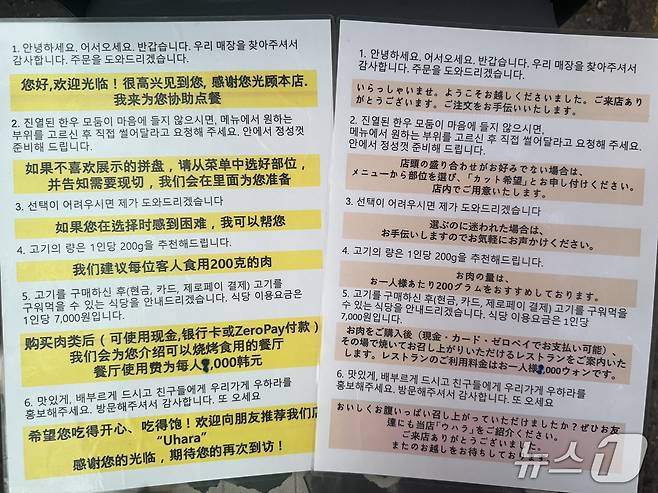 1. 안녕하세요. 어서오세요. 반갑습니다. 우리 매장을 찾아주셔서
감사합니다. 주문을 도와드리겠습니다.
您好,欢迎光临！很高兴见到您, 感谢您光顾本店.
我来为您协助点餐
2. 진열된 한우 모둠이 마음에 들지 않으시면, 메뉴에서 원하는
부위를 고르신 후 직접 썰어달라고 요청해 주세요. 안에서 정성껏
준비해 드립니다.
如果不喜欢展示的拼盘，请从菜单中选好部位，
并告知需要现切，我们会在里面为您准备
3. 선택이 어려우시면 제가 도와드리겠습니다
如果您在选择时感到困难，我可以帮您
4. 고기의 량은 1인당 200g을 추천해드립니다.
我们建议每位客人食用200克的肉
5. 고기를 구매하신 후(현금, 카드, 제로페이 결제) 고기를
구워먹을 수 있는 식당을 안내드리겠습니다. 식당 이용요금은
1인당 7,000원입니다.
购买肉类后（可使用现金,银行卡或ZeroPay付款）
我们会为您介绍可以烧烤食用的餐厅
餐厅使用费为每人,000韩元
6. 맛있게, 배부르게 드시고 친구들에게 우리가게 우하라를
홍보해주세요. 방문해주셔서 감사합니다. 또 오세요
希望您吃得开心、吃得饱！欢迎向朋友推荐我们店
“Uhara”
感谢您的光临，期待您的再次到访！
1. 안녕하세요. 어서오세요. 반갑습니다. 우리 매장을 찾아주셔서
감사합니다. 주문을 도와드리겠습니다.
いらっしゃいませ。ようこそお越しくださいました。ご来店あり
がとうございます。ご注文をお手伝いいたします。
2. 진열된 한우 모둠이 마음에 들지 않으시면,
메뉴에서 원하는 부위를 고르신 후 직접 썰어달라고 요청해
주세요. 안에서 정성껏 준비해 드립니다.
店頭の盛り合わせがお好みでない場合は、
メニューから部位を選び、「カット希望」とお申し付けください。
店内でご用意いたします。
3. 선택이 어려우시면 제가 도와드리겠습니다
選ぶのに迷われた場合は、
お手伝いしますのでお気軽にお声かけください。
4. 고기의 량은 1인당 200g을 추천해드립니다.
お肉の量は、
お一人様あたり200グラムをおすすめしております。
5. 고기를 구매하신 후(현금, 카드, 제로페이 결제) 고기를
구워먹을 수 있는 식당을 안내드리겠습니다. 식당 이용요금은 1인당
7,000원입니다.
お肉をご購入後（現金・カード・ゼロペイでお支払い可能）、
その場で焼いてお召し上がりいただけるレストランをご案内いた
します。レストランのご利用料金はお一人様,000ウォンです。
6. 맛있게, 배부르게 드시고 친구들에게 우리가게 우하라를
홍보해주세요. 방문해주셔서 감사합니다. 또 오세요
おいしくお腹いっぱい召し上がっていただけましたか？ぜひお友
達にも当店「ウハラ」をご紹介ください。
ご来店ありがとうございました。
またのお越しをお待ちしてお
뉴스1